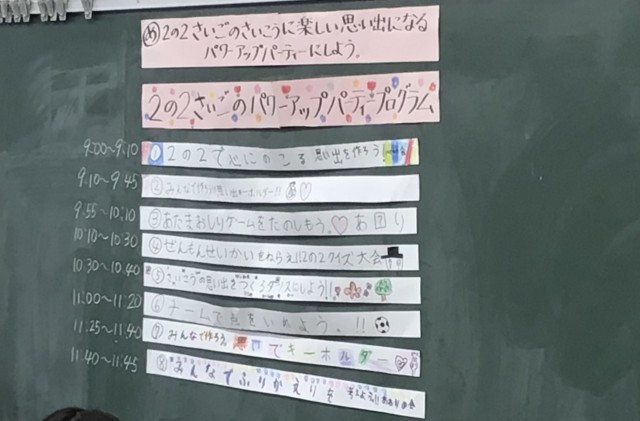 め 2の2さいごのさいこうに楽しい思い出になる
パワーアップパーティーにしよう。
2の2さいごのパワーアップパーティープログラム
9:00~9:10 ①2の2で心にのこる思い出を作ろう
9:10~9:45 ②みんなで作ろう思い出キーホルダー!!
9:55~10:10 ③あたまおしりゲームをたのしもう。♡ あ?り
10:10~10:30 ④ぜんもんせいかいをねらえ!!2の2クイズ大会
10:30~10:40 ⑤さいこうの思い出をつくるダンスにしよう!!
11:00~11:20 ⑥チームで点をいれよう。!!
11:25~11:40 ⑦みんなで作ろう。 でキーホルダー
11:40~11:45 ⑧みんなでふりかえりを